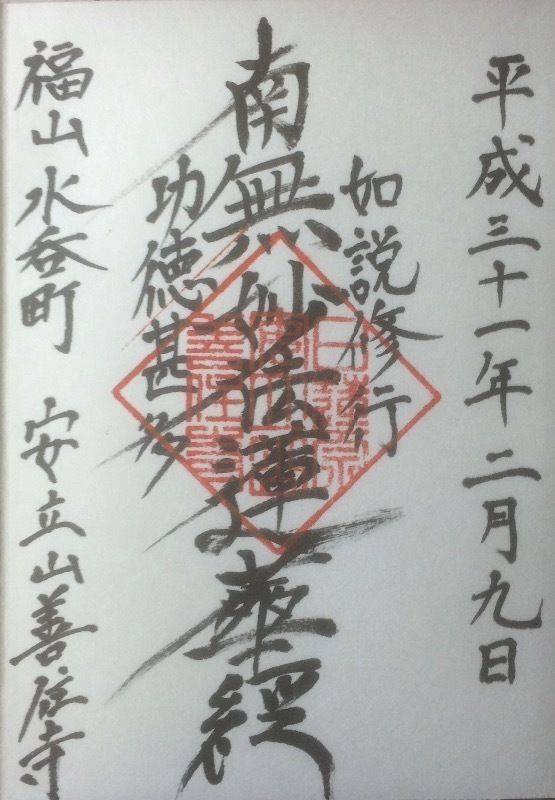 平成三十一年二月九日
如説修行
南無妙法蓮華経
功徳甚多
福山水呑町 安立山善住寺